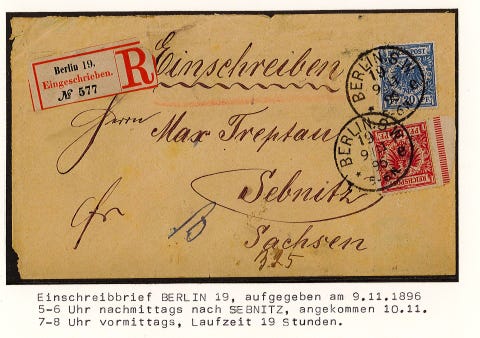 Berlin 19.
Eingeschrieben.
№ 577
R
Einschreiben
BERLIN. S.W.
19
BERLIN. S.W.
19
REICHSPOST
Herrn Max Treptau
Sebnitz
Fr.
Sachsen
325
Einschreibbrief BERLIN 19, aufgegeben am 9.11.1896
5-6 Uhr nachmittags nach SEBNITZ, angekommen 10.11.
7-8 Uhr vormittags, Laufzeit 19 Stunden.